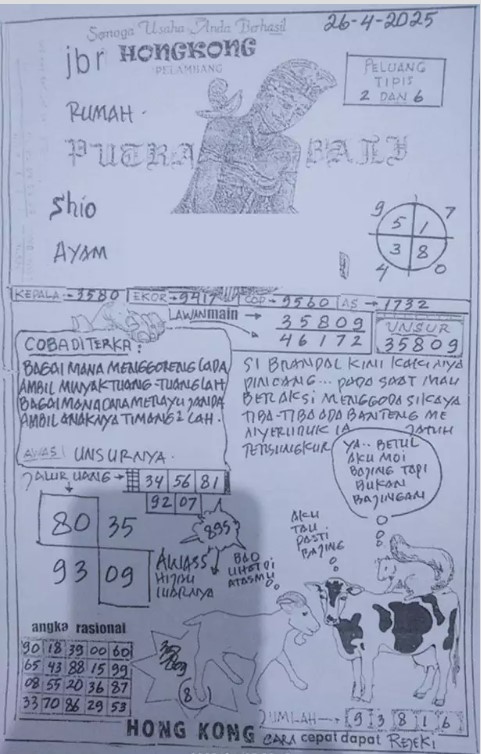 Semoga Usaha Anda Berhasil
26-4-2025
jbr HONGKONG
PELAMBANG
PELUANG
TIPIS
2 DAN 6
RUMAH
PUTRA BALI
Shio
AYAM
9 5 1 7
4 3 8 0
KEPALA → 3580 EKOR → 9417 COP → 9560 AS → 1732
LAWAN main → 35809
46172
UNSUR
35809
COBA DITERKA:
BAGAI MANA MENGGORENG LADA
AMBIL MINYAK TUANG-TUANG LAH
BAGAI MANA CARA MERAYU JANDA
AMBIL ANAKNYA TIMANG2 LAH.
AWAS! UNSURNYA.
SI BRANDAL KINI KAKINYA
PINCANG... PADA SAAT MAU
BERAKSI MENGGODA SI KAYA
TIBA-TIBA ADA BANTENG ME
NYERUDUK IA JATUH
TERSUNGKUR
JALUR UANG → 34 56 81
92 07
80 35
93 09
895
AWASS
HIJAU
LUARNYA
BAO
LIHAT DI
ATASMU
AKU
TAU
PASTI
BAJING
YA.. BETUL
AKU MOI
BAJING TAPI
BUKAN
BAJINGAN
angka rasional
90 18 39 00 60
65 43 88 15 99
08 55 20 36 87
33 70 86 29 53
8
JUMLAH → 9 3 8 1 6
HONG KONG CARA cepat dapat REJEKI